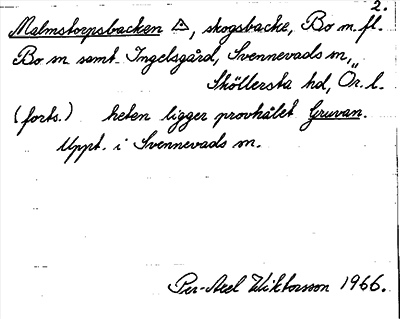 2.
Malmstorpsbacken, skogsbacke, Bo m.fl.
Bo sn samt Ingelsgård, Svennevads sn,
Sköllersta hd, Ör. l.
(forts.) heten ligger provhålet Gruvan.
Uppt. i Svennevads sn.
Per-Axel Wiktorsson 1966.